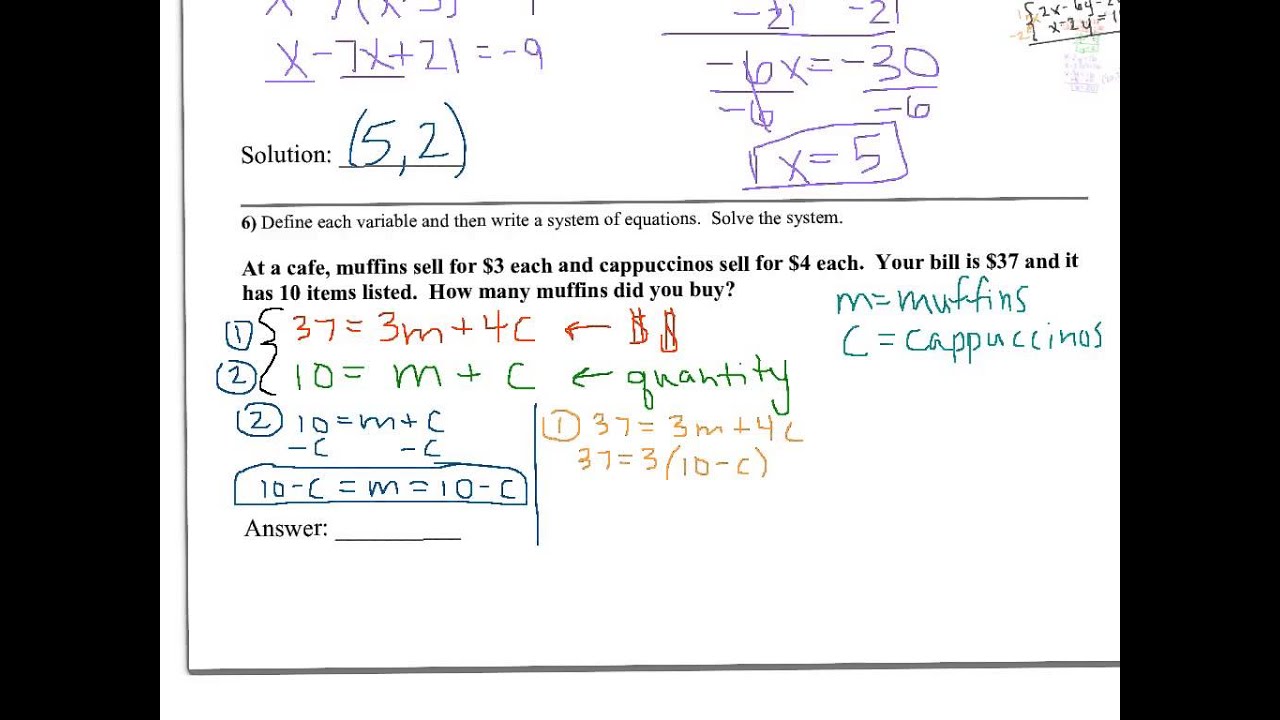 x - 7x + 21 = -9
-21 -21
-6x = -30
-6 -6
x = 5
Solution: (5, 2)
6) Define each variable and then write a system of equations. Solve the system.
At a cafe, muffins sell for $3 each and cappuccinos sell for $4 each. Your bill is $37 and it
has 10 items listed. How many muffins did you buy?
m = muffins
C = cappuccinos
① 37 = 3m + 4C ← $$
② 10 = m + C ← quantity
② 10 = m + C
-C -C
10 - C = m = 10 - C
① 37 = 3m + 4C
37 = 3(10 - C)
Answer: